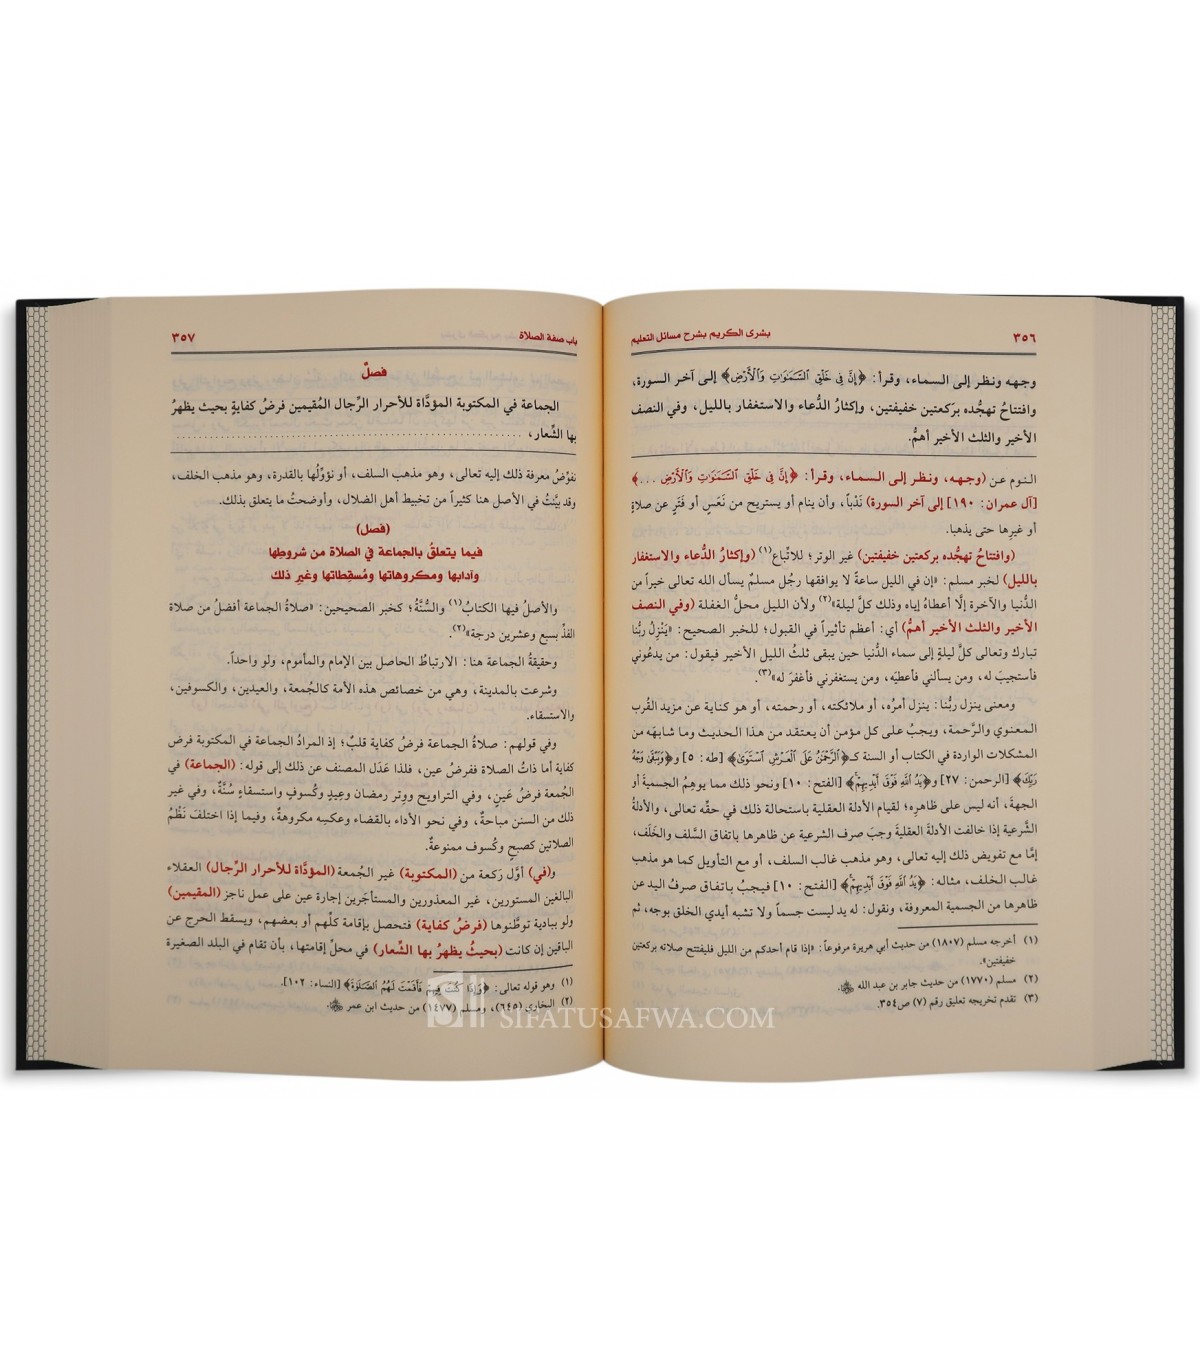 ٣٥٦
بشرى الكريم بشرح مسائل التعليم
وجهه ونظر إلى السماء، وقرأ: ﴿إِنَّ فِي خَلْقِ السَّمَٰوَٰتِ وَالْأَرْضِ﴾ إلى آخر السورة،
وافتتاحُ تهجُّده بركعتين خفيفتين، وإكثارُ الدُّعاء والاستغفار بالليل، وفي النصف
الأخير والثلث الأخير أهمُّ.
النوم عن (وجهه، ونظر إلى السماء، وقرأ: ﴿إِنَّ فِي خَلْقِ السَّمَٰوَٰتِ وَالْأَرْضِ ...﴾
[آل عمران: ١٩٠] إلى آخر السورة) نَدْباً، وأن ينام أو يستريح من نَعَسٍ أو فَتَرٍ عن صلاةٍ
أو غيرِها حتى يذهبا.
(وافتتاحُ تهجُّده بركعتين خفيفتين) غير الوتر؛ للاتِّباع(١) (وإكثارُ الدُّعاء والاستغفار
بالليل) لخبر مسلم: «إن في الليل ساعةً لا يوافقها رجُل مسلمٌ يسأل الله تعالى خيراً من
الدُّنيا والآخرة إلَّا أعطاهُ إياه وذلك كلَّ ليلة»(٢) ولأن الليل محلُّ الغفلة (وفي النصف
الأخير والثلث الأخير أهمُّ) أي: أعظم تأثيراً في القبول؛ للخبر الصحيح: «يَنْزِلُ ربُّنا
تبارك وتعالى كلَّ ليلةٍ إلى سماء الدُّنيا حين يبقى ثلثُ الليل الأخير فيقول: من يدعُوني
فأستجيبَ له، ومن يسألني فأعطيَه، ومن يستغفرني فأغفرَ له»(٣).
ومعنى ينزل ربُّنا: ينزل أمرُه، أو ملائكته، أو رحمته، أو هو كناية عن مزيد القُرب
المعنوي والرَّحمة، ويجبُ على كل مؤمن أن يعتقد من هذا الحديث وما شابهَه من
المشكلات الواردة في الكتاب أو السنة كـ﴿الرَّحْمَٰنُ عَلَى الْعَرْشِ اسْتَوَىٰ﴾ [طه: ٥] و﴿وَيَبْقَىٰ وَجْهُ
رَبِّكَ﴾ [الرحمن: ٢٧] و﴿يَدُ اللَّهِ فَوْقَ أَيْدِيهِمْ﴾ [الفتح: ١٠] ونحو ذلك مما يوهِمُ الجسميةَ أو
الجهةَ، أنه ليس على ظاهرِه؛ لقيام الأدلة العقلية باستحالة ذلك في حقِّه تعالى، والأدلةُ
الشَّرعية إذا خالفت الأدلةَ العقليةَ وجبَ صرف الشرعية عن ظاهرها باتفاق السَّلف والخَلَف،
إمَّا مع تفويض ذلك إليه تعالى، وهو مذهب غالب السلف، أو مع التأويل كما هو مذهب
غالب الخلف، مثاله: ﴿يَدُ اللَّهِ فَوْقَ أَيْدِيهِمْ﴾ [الفتح: ١٠] فيجبُ باتفاق صرفُ اليد عن
ظاهرها من الجسمية المعروفة، ونقول: له يد ليست جسماً ولا تشبه أيدي الخلق بوجه، ثم
(١) أخرجه مسلم (١٨٠٧) من حديث أبي هريرة مرفوعاً: «إذا قام أحدكم من الليل فليفتتح صلاته بركعتين
خفيفتين».
(٢) مسلم (١٧٧٠) من حديث جابر بن عبد الله ﷺ.
(٣) تقدم تخريجه تعليق رقم (٧) ص٣٥٤.
باب صفة الصلاة
٣٥٧
فصلٌ
الجماعة في المكتوبة المؤدَّاة للأحرار الرِّجال المُقيمين فرضُ كفايةٍ بحيث يظهرُ
بها الشِّعار، ........................................
نفوِّضُ معرفة ذلك إليه تعالى، وهو مذهب السلف، أو نؤوِّلُها بالقدرة، وهو مذهب الخلف،
وقد بيَّنتُ في الأصل هنا كثيراً من تخبيط أهل الضلال، وأوضحتُ ما يتعلق بذلك.
(فصل)
فيما يتعلقُ بالجماعة في الصلاة من شروطِها
وآدابها ومكروهاتها ومُسقِطاتها وغيرِ ذلك
والأصلُ فيها الكتابُ(١) والسُّنَّةُ؛ كخبر الصحيحين: «صلاةُ الجماعة أفضلُ من صلاة
الفذِّ بسبع وعشرين درجة»(٢).
وحقيقةُ الجماعة هنا: الارتباطُ الحاصل بين الإمام والمأموم، ولو واحداً.
وشرعت بالمدينة، وهي من خصائص هذه الأمة كالجُمعة، والعيدين، والكسوفين،
والاستسقاء.
وفي قولهم: صلاةُ الجماعة فرضُ كفاية قلبٌ؛ إذ المرادُ الجماعة في المكتوبة فرض
كفاية أما ذاتُ الصلاة ففرضُ عين، فلذا عَدَل المصنف عن ذلك إلى قوله: (الجماعة) في
الجُمعة فرضُ عَينٍ، وفي التراويح ووِتر رمضان وعِيدٍ وكُسوفٍ واستسقاءٍ سُنَّةٌ، وفي غير
ذلك من السنن مباحةٌ، وفي نحو الأداء بالقضاء وعكسِه مكروهةٌ، وفيما إذا اختلفَ نَظْمُ
الصلاتين كصبحٍ وكُسوف ممنوعةٌ.
و(في) أوَّل رَكعة من (المكتوبة) غيرِ الجُمعة (المؤدَّاة للأحرار الرِّجال) العقلاء
البالغين المستورين، غير المعذورين والمستأجَرين إجارة عين على عمل ناجز (المقيمين)
ولو ببادية توطَّنوها (فرضُ كفاية) فتحصل بإقامة كلِّهم أو بعضهم، ويسقط الحرج عن
الباقين إن كانت (بحيثُ يظهرُ بها الشِّعار) في محلِّ إقامتها، بأن تقام في البلد الصغيرة
(١) وهو قوله تعالى: ﴿وَإِذَا كُنتَ فِيهِمْ فَأَقَمْتَ لَهُمُ الصَّلَوٰةَ﴾ [النساء: ١٠٢].
(٢) البخاري (٦٤٥)، ومسلم (١٤٧٧) من حديث ابن عمر
SIFATUSAFWA.COM